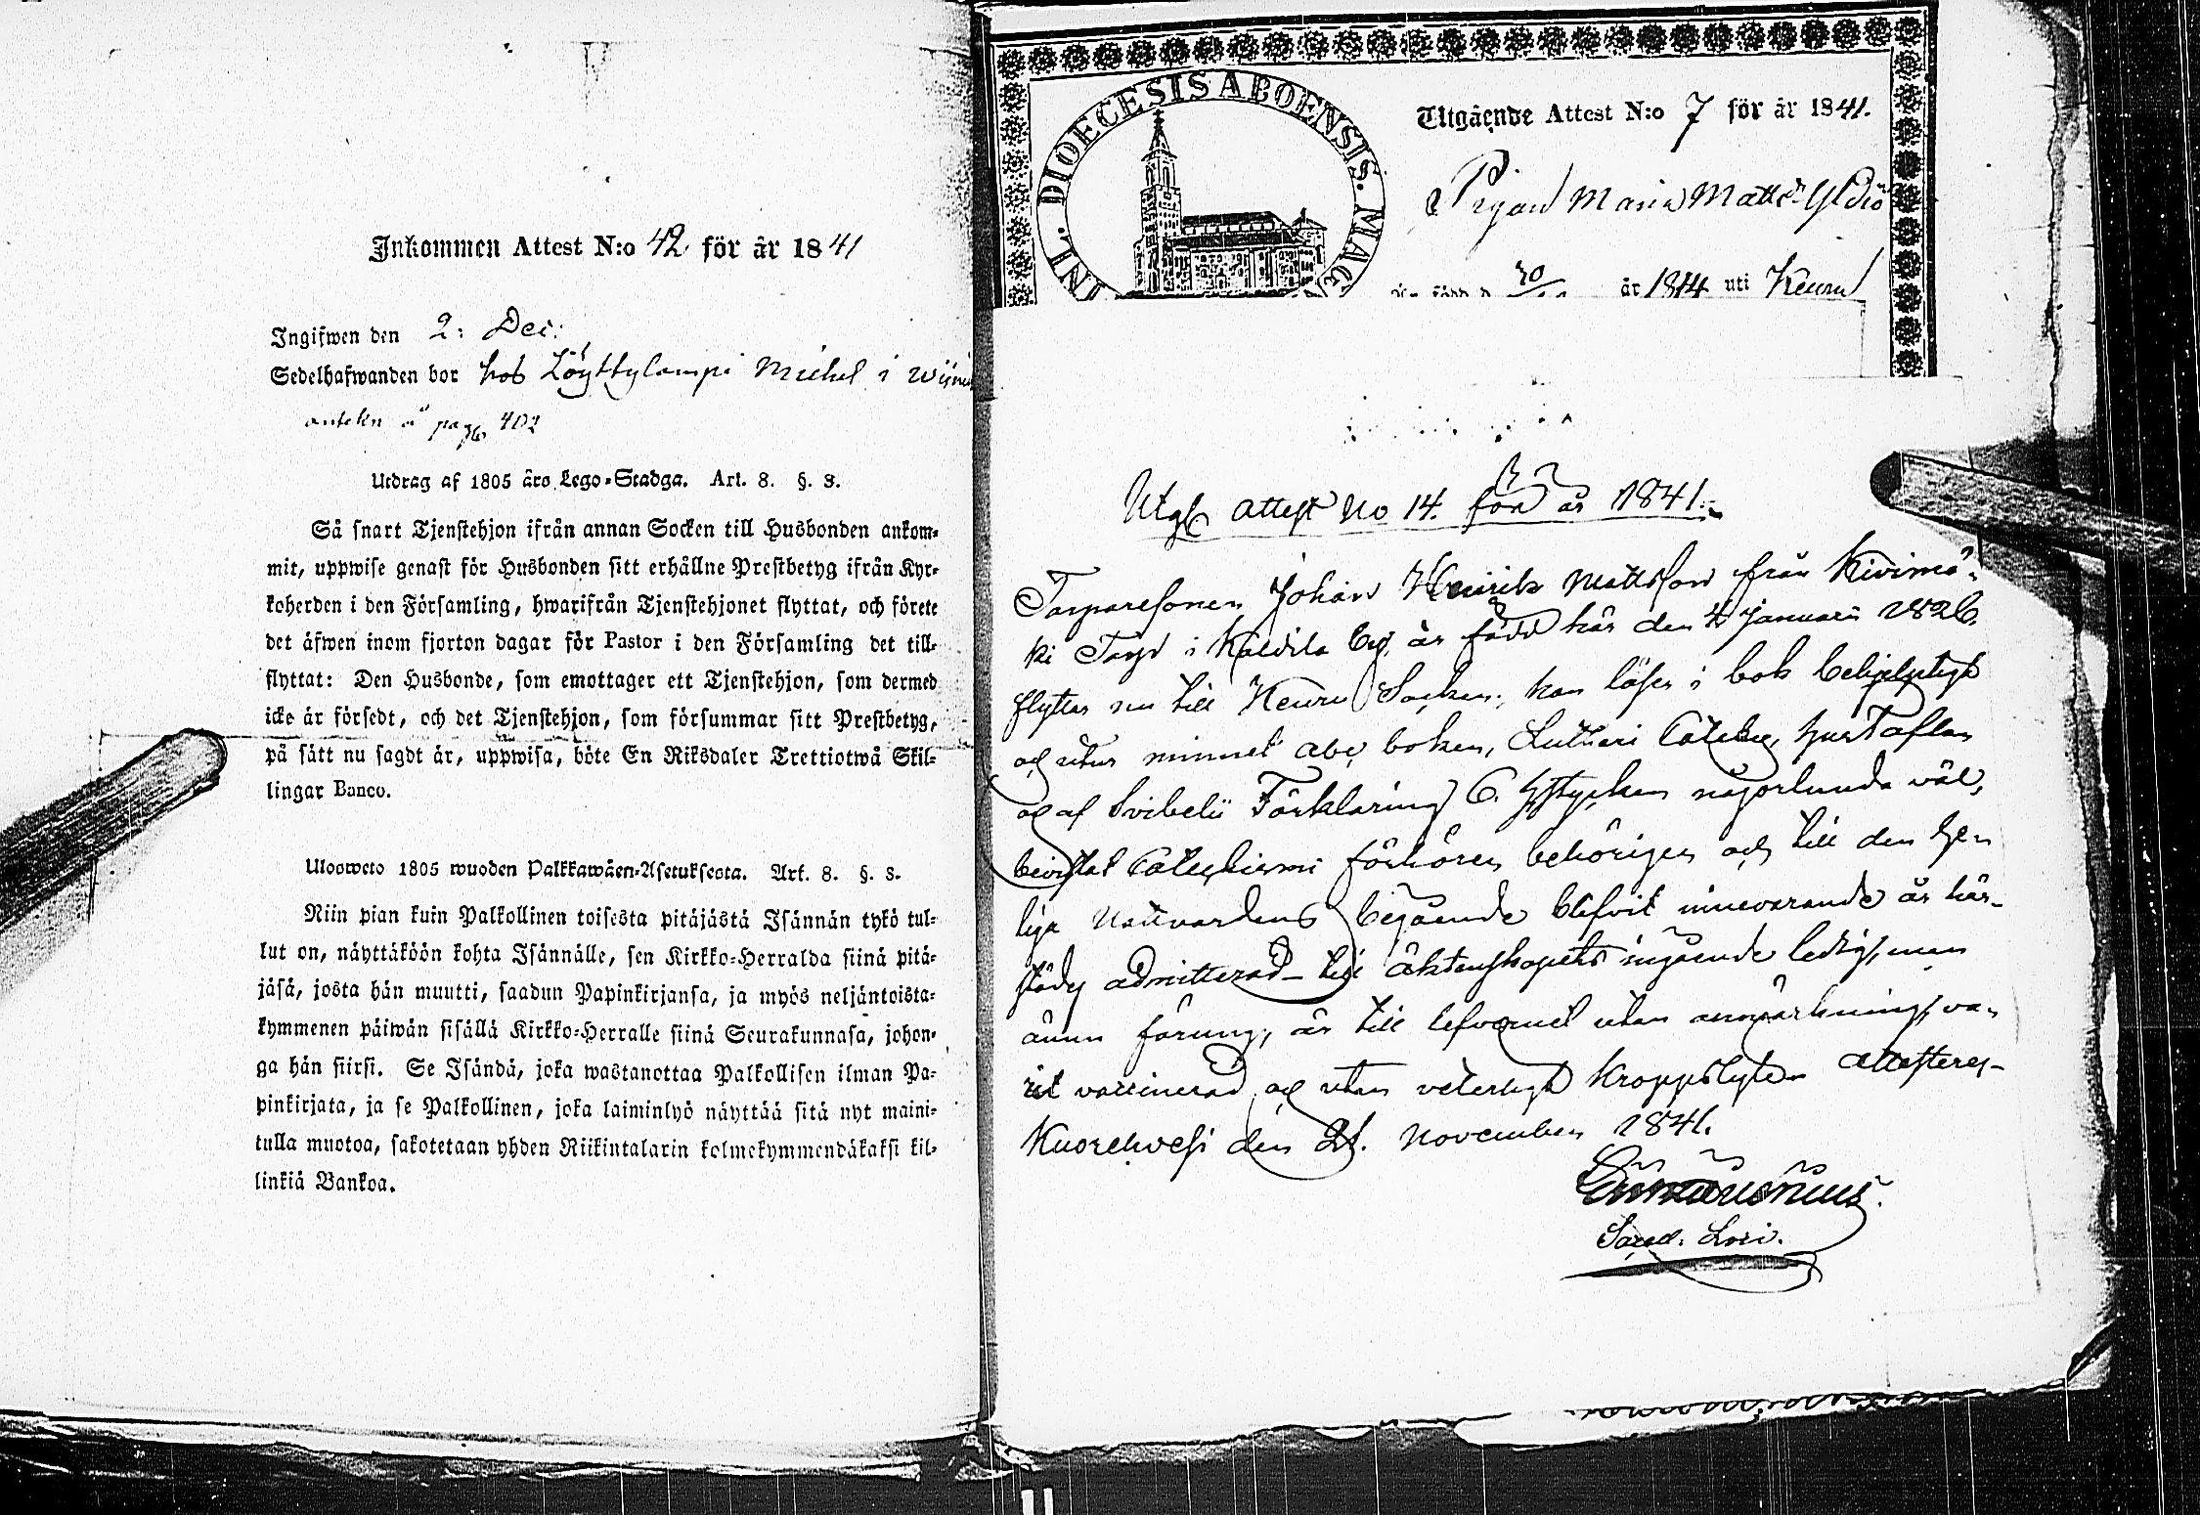 Inkommen Attest N:o 42 för år 1841
Ingifwen den 2: Dec:
Sedelhafwanden bor hos Löyttylampi Michel i
antekn å pag 402
Utdrag af 1805 års Lego-Stadga. Art. 8. §. 3.
Så snart Tjenstehjon ifrån annan Socken till Husbonden ankom-
mit, uppwise genast för Husbonden sitt erhållne Prestbetyg ifrån Kyr-
koherden i den Församling, hwarifrån Tjenstehjonet flyttat, och förete
det äfwen inom fjorton dagar för Pastor i den Församling det till-
flyttat: Den Husbonde, som emottager ett Tjenstehjon, som dermed
icke är försedt, och det Tjenstehjon, som försummar sitt Prestbetyg,
på sätt nu sagdt är, uppwisa, böte En Riksdaler Trettiotwå Skil-
lingar Banco.
Ulosweto 1805 wuoden Palkkawäen-Asetuksesta. Art. 8. §. 3.
Niin pian kuin Palkollinen toisesta pitäjästä Isännän tykö tul-
lut on, näyttäköön kohta Isännälle, sen Kirkko-Herralda siinä pitä-
jäsä, josta hän muutti, saadun Papinkirjansa, ja myös neljäntoista-
kymmenen päiwän sisällä Kirkko-Herralle siinä Seurakunnasa, johon-
ga hän siirsi. Se Isändä, joka wastanottaa Palkollisen ilman Pa-
pinkirjata, ja se Palkollinen, joka laiminlyö näyttää sitä nyt maini-
tulla muotoa, sakotetaan yhden Riikintalarin kolmekymmendäkaksi kil-
linkiä Bankoa.
DIOECESIS ABOENSIS. MAG
Utgående Attest N:o 7 för år 1841.
Pigan Maria Matts
år 1814 uti Keuru
Utg attest No 14. för år 1841.
Torparesonen Johan Henrik Mattsson från Kivimä-
ki Torp i by, är född här den 4 Januari 1826.
flyttar nu till Keuru Socken, kan läsa i bok behjelpligt
och utur minnet abc boken, Lutheri Cateches, hustaflan
och af Svibelii Förklaring 6. Hstycken någorlunda väl,
bevistat Catechismi förhören behörigen och till den Hen
liga Nattvardens begående blifvit innevarande år här-
städes admitterad till äktenskapets ingående ledig, men
ännu förung, är till lefvernet utan anmärkning, va-
rit vaccinerad, och utan veterligt kroppslyte attesteres
Kuorehvesi den 21. November 1841.
Saced. Loci.